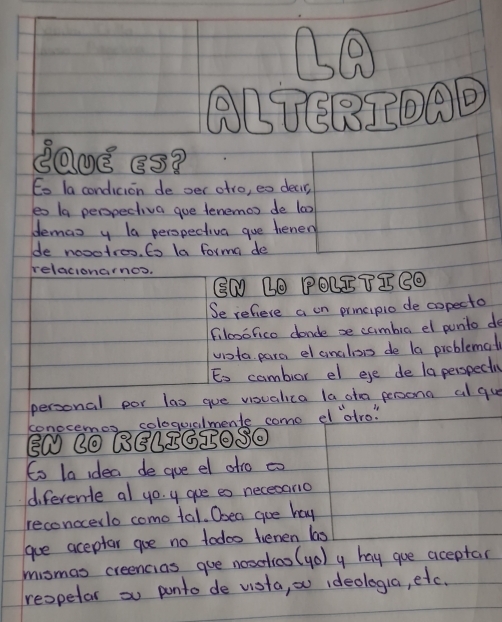 LA
ALTERIDAD
¿QUÉ ES?
Es la condición de ser otro, es decir
es la perspectiva que tenemos de los
demas y la perspectiva que tienen
de nosotros. Es la forma de
relacionarnos.
EN LO POLITICO
Se refiere a un principio de aspecto
filosófico donde se cambia el punto de
vista para el analisis de la problemati
Es cambiar el eje de la perspectiv
personal por las que visualica la otra persona al que
conocemos coloquialmente como el "otro".
EN LO RELIGIOSO
Es la idea de que el otro es
diferente al yo. y que es necesario
reconocerlo como tal. Osea que hay
que aceptar que no todos tienen las
mismas creencias que nosotros (yo) y hay que aceptar
respetar su punto de vista, su ideologia, etc.